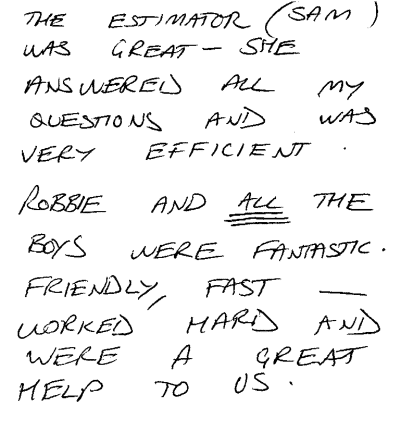 THE ESTIMATOR (SAM)
WAS GREAT - SHE
ANSWERED ALL MY
QUESTIONS AND WAS
VERY EFFICIENT.
ROBBIE AND ALL THE
BOYS WERE FANTASTIC.
FRIENDLY, FAST —
WORKED HARD AND
WERE A GREAT
HELP TO US.